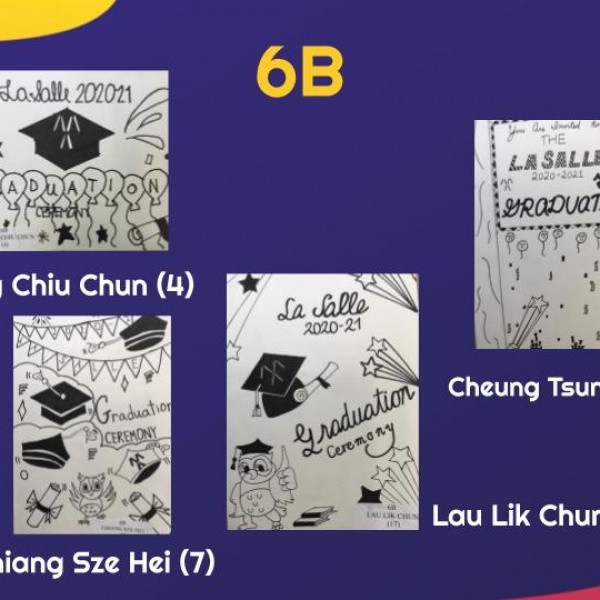 6B
La Salle 202021
ADUATION
CEREMONY
g Chiu Chun (4)
You Are Invited to
THE
LA SALLE
2020-2021
GRADUAT
Cheung Tsun
Graduation
CEREMONY
6B
CHIANG SZE HEI
hiang Sze Hei (7)
La Salle
2020-21
Graduation
Ceremony
6B
LAU LIK CHUN
(17)
Lau Lik Chun